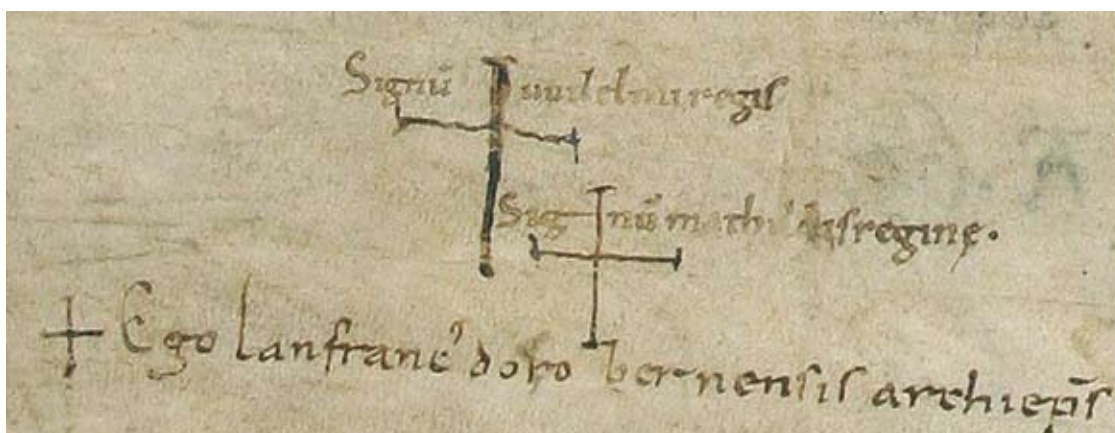 Signū wilelmi regis
Signū mathildis regine.
+ Ego lanfranc' dorobernensis archiep̄s